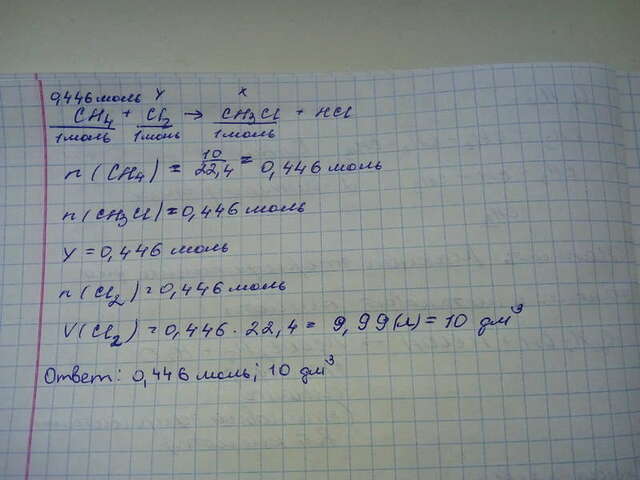 0,446 моль y x
CH4 + Cl2 → CH3Cl + HCl
1 моль 1 моль 1 моль
n(CH4) = 10/22,4 = 0,446 моль
n(CH3Cl) = 0,446 моль
y = 0,446 моль
n(Cl2) = 0,446 моль
V(Cl2) = 0,446 · 22,4 = 9,99(л) = 10 дм³
Ответ: 0,446 моль; 10 дм³